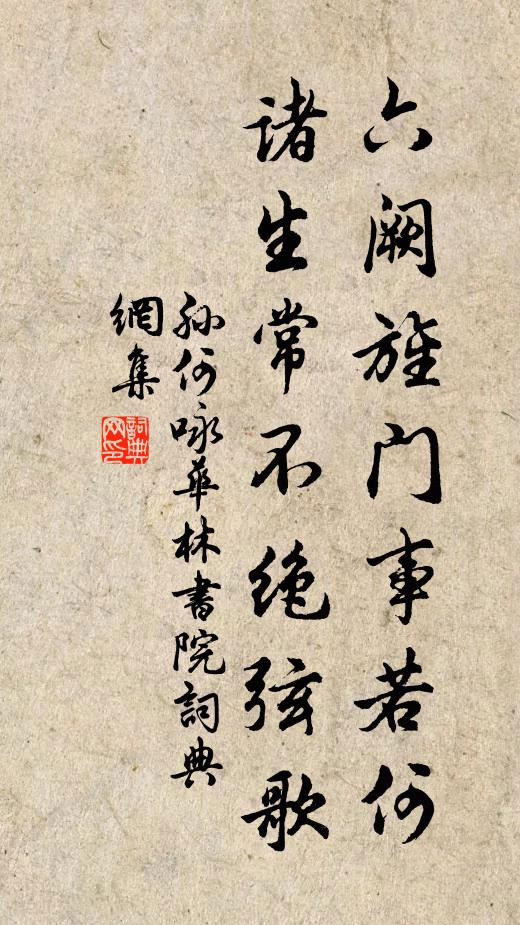 六阙旌门事若何
诸生常不绝弦歌
孙何咏華林書院詞典
網集
詞典
网印